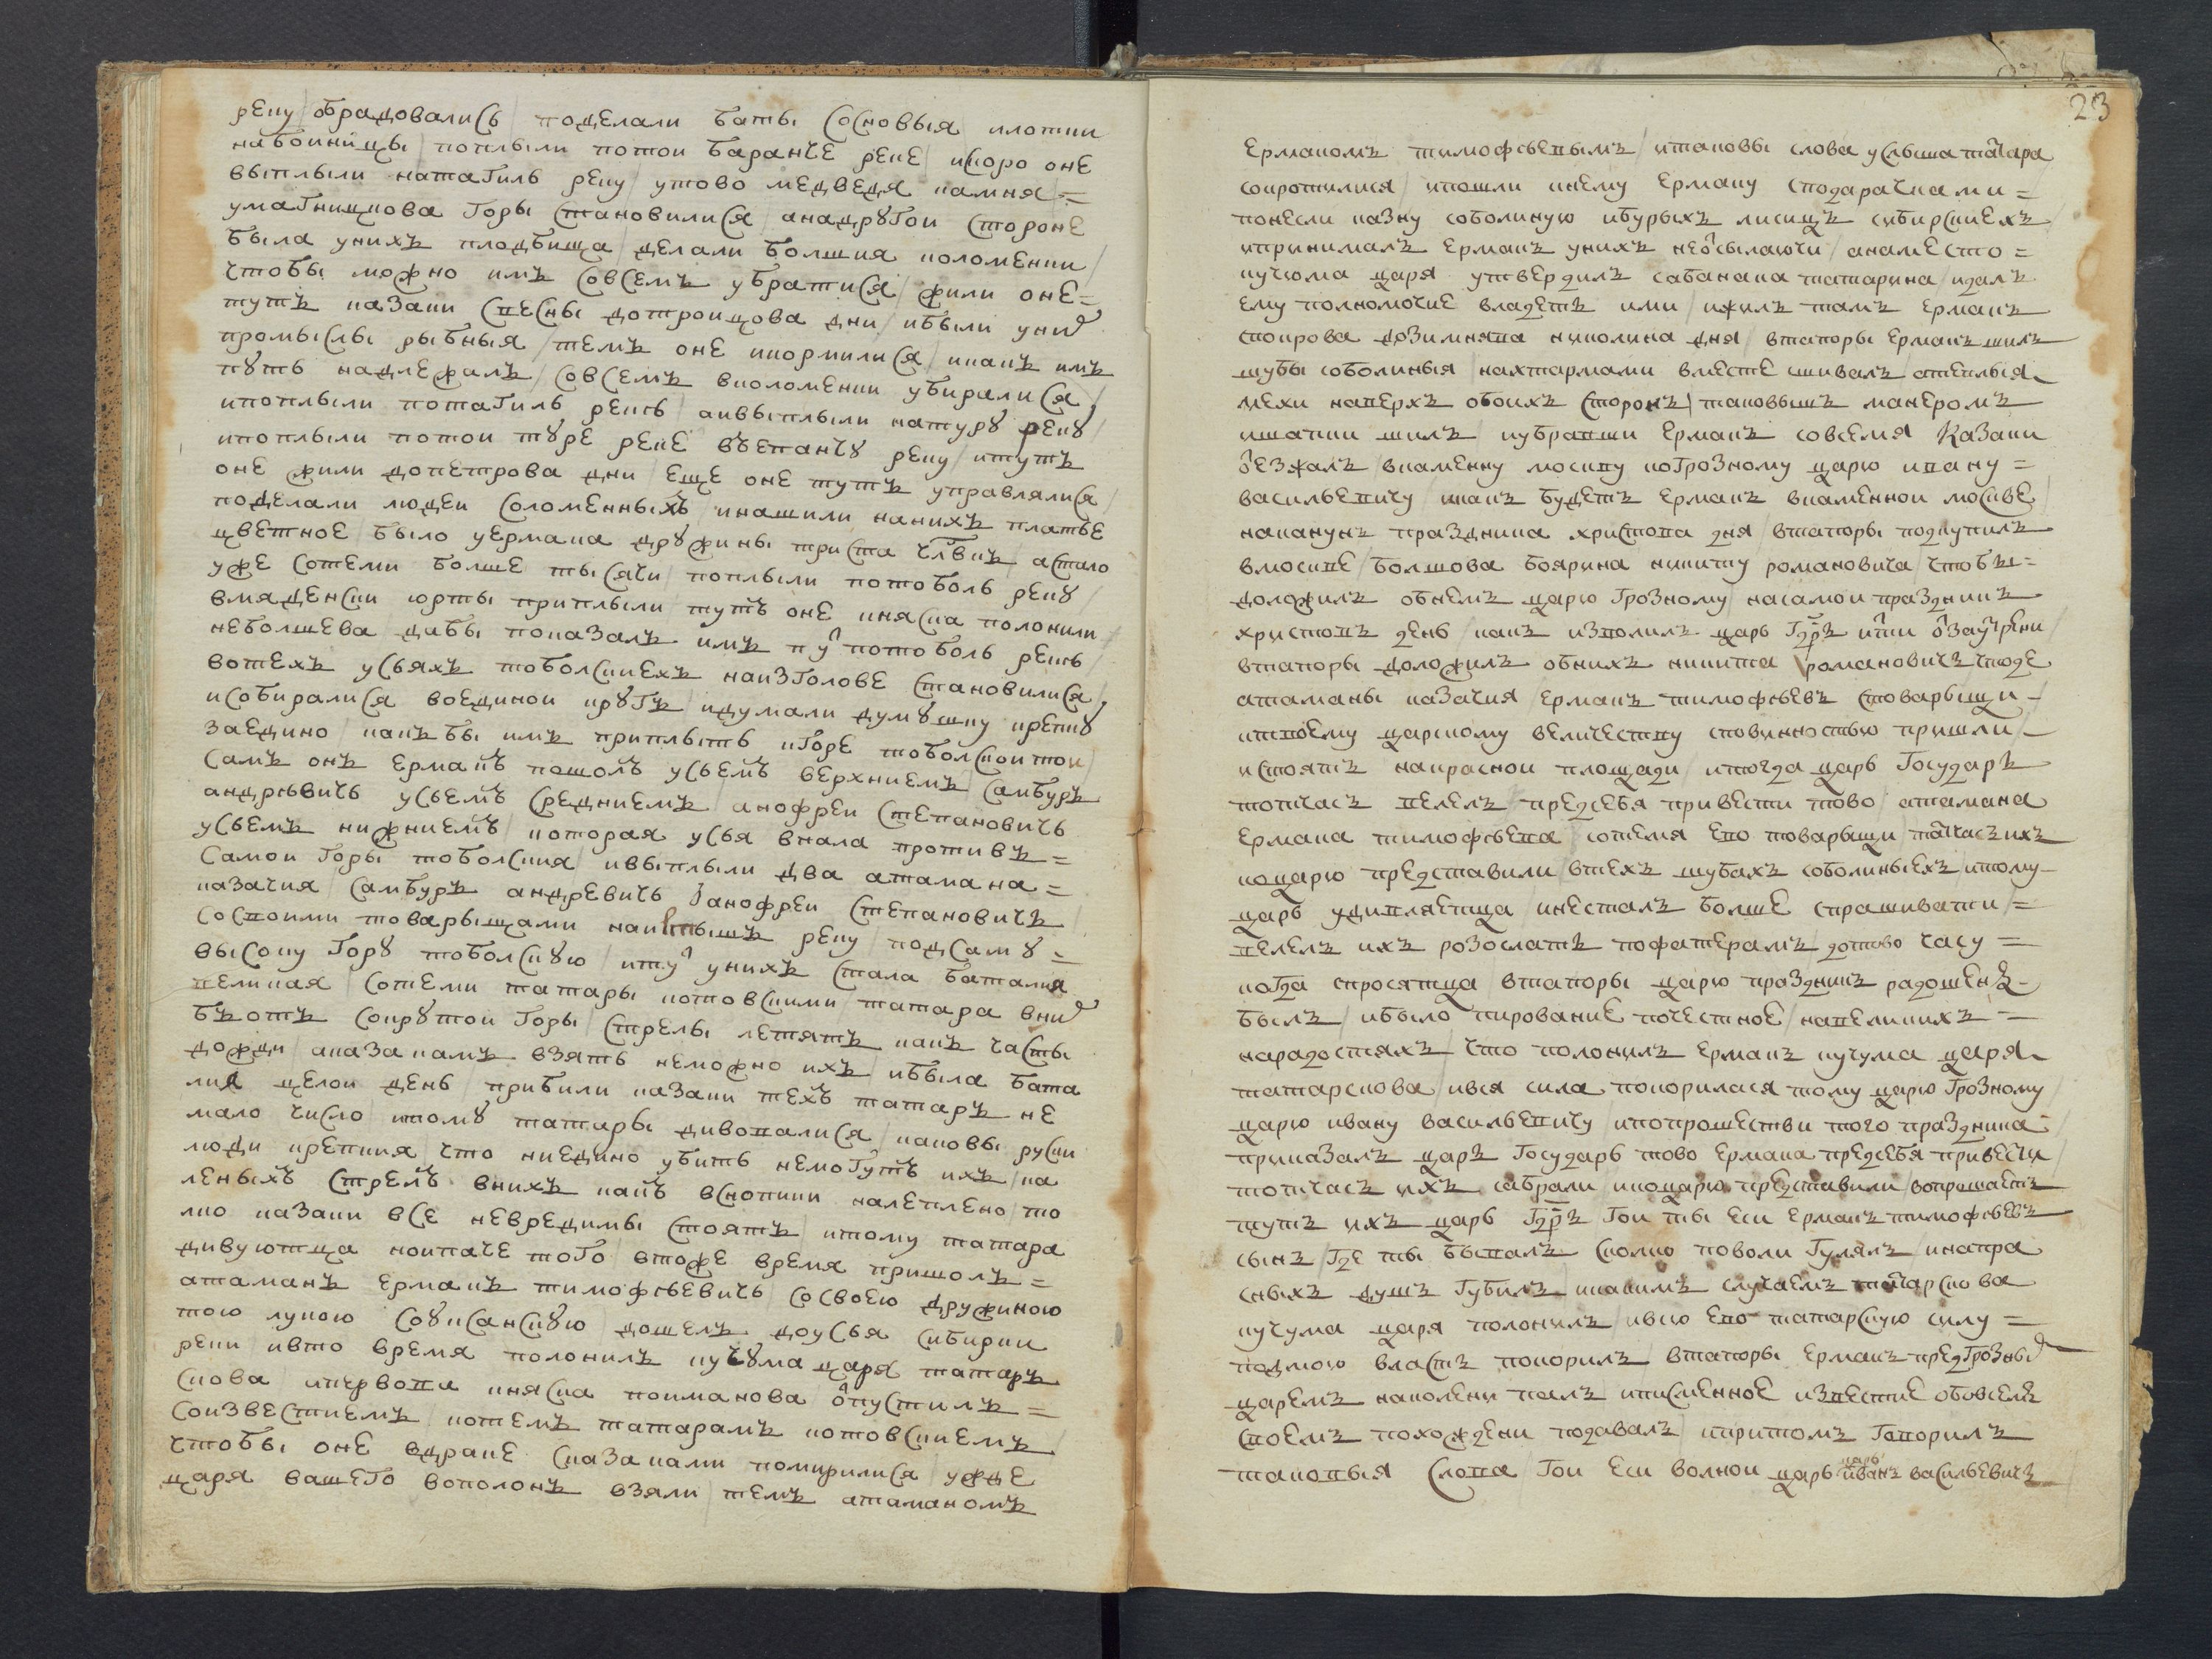 реку / обрадовались / поделали баты сосновыя / илотки
набоиницы / поплыли потои баранче реке / искоро оне
выплыли натагиль реку / утово медведя камня =
умагницкова горы становилися / анадругои стороне
была унихъ плодбища / делали болшия коломенки /
чтобы можно имъ совсемъ убратися / жили оне =
тутъ казаки свесны дотроицова дни / ибыли уних
промыслы рыбныя / темъ оне икормилися / икакъ имъ
путь надлежалъ / совсемъ вколоменки убиралися /
ипоплыли потагиль реке / аивыплыли натуру реку /
ипоплыли потои туре реке въепанчу реку / итутъ
оне жили допетрова дни / еще оне тутъ управлялися /
поделали людеи соломенныхъ / инашили нанихъ платье
цветное / было уермака дружины триста члвкъ / астало
уже сотеми болше тысячи / поплыли потоболь реку /
вмяденски юрты приплыли / тутъ оне князка полонили
неболшева дабы показалъ имъ пут потоболь реке /
вотехъ усьяхъ тоболскиехъ наизголове становилися /
исобиралися воединои кругъ / идумали думушку крепку
заедино / какъ бы имъ приплыть кгоре тоболскои тои /
самъ онъ ермакъ пошолъ усьемъ верхниемъ / самбуръ
андреевичь усьемъ среднием / анофреи степановичь
усьемъ нижниемъ / которая усья впала противъ =
самои горы тоболския / ивыплыли два атамана =
казачия самбуръ андревичь ианофреи степановичъ
соспоими товарыщами наиртышъ реку / подсаму =
высоку гору тоболскую / итут унихъ стала баталия
великая / сотеми татары котовскими / татара вних
бьютъ сокрутои горы / стрелы летятъ какъ часты
дожди / аказакамъ взять неможно ихъ / ибыла бата
лия целои день / прибили казаки техъ татаръ не
мало число / итому татары дивовалися / каковы руски
люди крепкия / что ниедино убить немогутъ ихъ / ка
леныхъ стрелъ вних какъ вснопики налеплено / то
лко казаки все невредимы стоятъ / итому татара
дивуютца ноипаче того / втоже время пришолъ =
атаманъ ермакъ тимофеевичь / сосвоею дружиною
тою лукою соуксанскую / дошелъ доусья сибирки
реки / ивто время полонилъ кучума царя татаръ
скова / ипервова князка поиманова отпустилъ =
соизвестиемъ / котемъ татарамъ котовскиемъ /
чтобы оне вдраке сказаками помирилися / ужде
царя вашего вополонъ взяли / темъ атаманомъ
23
Ермакомъ тимофеевымъ / итаковы слова услыша татара
сокротилися / ипошли кнему ермаку сподарачками =
понесли казну соболиную ибурыхъ лисицъ сибирскиехъ /
ипринималъ ермакъ унихъ неотсылаючи / анаместо =
кучюма царя утвердилъ сабанака татарина / идалъ
ему полномочие владеть ими / ижилъ тамъ ермакъ
спокрова дозимнява николина дня / втапоры ермакъ шилъ
шубы соболиныя / нахтармами вместе шивалъ атеплыя
мехи наверхъ обоихъ сторонъ / таковышъ манеромъ
ишапки шилъ / иубравши ермакъ совсемя казаки
отезжалъ вкаменну москву когрозному царю ивану =
васильевичу / икакъ будетъ ермакъ вкаменнои москве
наканунъ праздника христова дня / втапоры подкупилъ
вмоскве / болшова боярина никиту романовича / чтобы =
доложилъ обнемъ царю грозному / насамои праздникъ
христовъ день / какъ изволилъ царь гдрь итти отзаутрени /
втапоры доложилъ обнихъ никита романовичъ / чтоде
атаманы казачия / ермакъ тимофеевъ стоварыщи -
ктвоему царскому величеству сповинностью пришли /
истоятъ накраснои площади / итогда царь государь
тотчасъ велелъ предсебя привести тово атамана
ермака тимофеева сотемя ево товарыщи / татчасъ ихъ
коцарю представили / втехъ шубахъ соболиныехъ / итому
царь удивляетца / инесталъ болше спрашивати =
велелъ ихъ розослать пофатерамъ / дотово часу =
когда спросятца / втапоры царю праздникъ радошенъ
былъ / ибыло пирование почестное / навеликихъ =
нарадостяхъ / что полонилъ ермакъ кучума царя
татарскова / ився сила покорилася тому царю грозному /
царю ивану васильевичу / ипопрошестви того праздника
приказалъ царь государь тово ермака предсебя привести /
тотчасъ ихъ сабрали / икоцарю представили / вопрошаетъ
тутъ ихъ царь гдрь гои ты еси ермакъ тимофеевъ
сынъ / где ты бывалъ сколко поволи гулялъ / инапра
сныхъ душъ губилъ / икакимъ случаемъ татарскова
кучума царя полонилъ / ивсю ево татарскую силу =
подмою власть покорилъ / втапоры ермакъ предгрозным
царемъ наколени палъ / иписменное известие обовсемъ
своемъ похождени подавалъ / ипритомъ говорилъ
таковыя слова / гои еси волнои царь царь иванъ васильевичъ